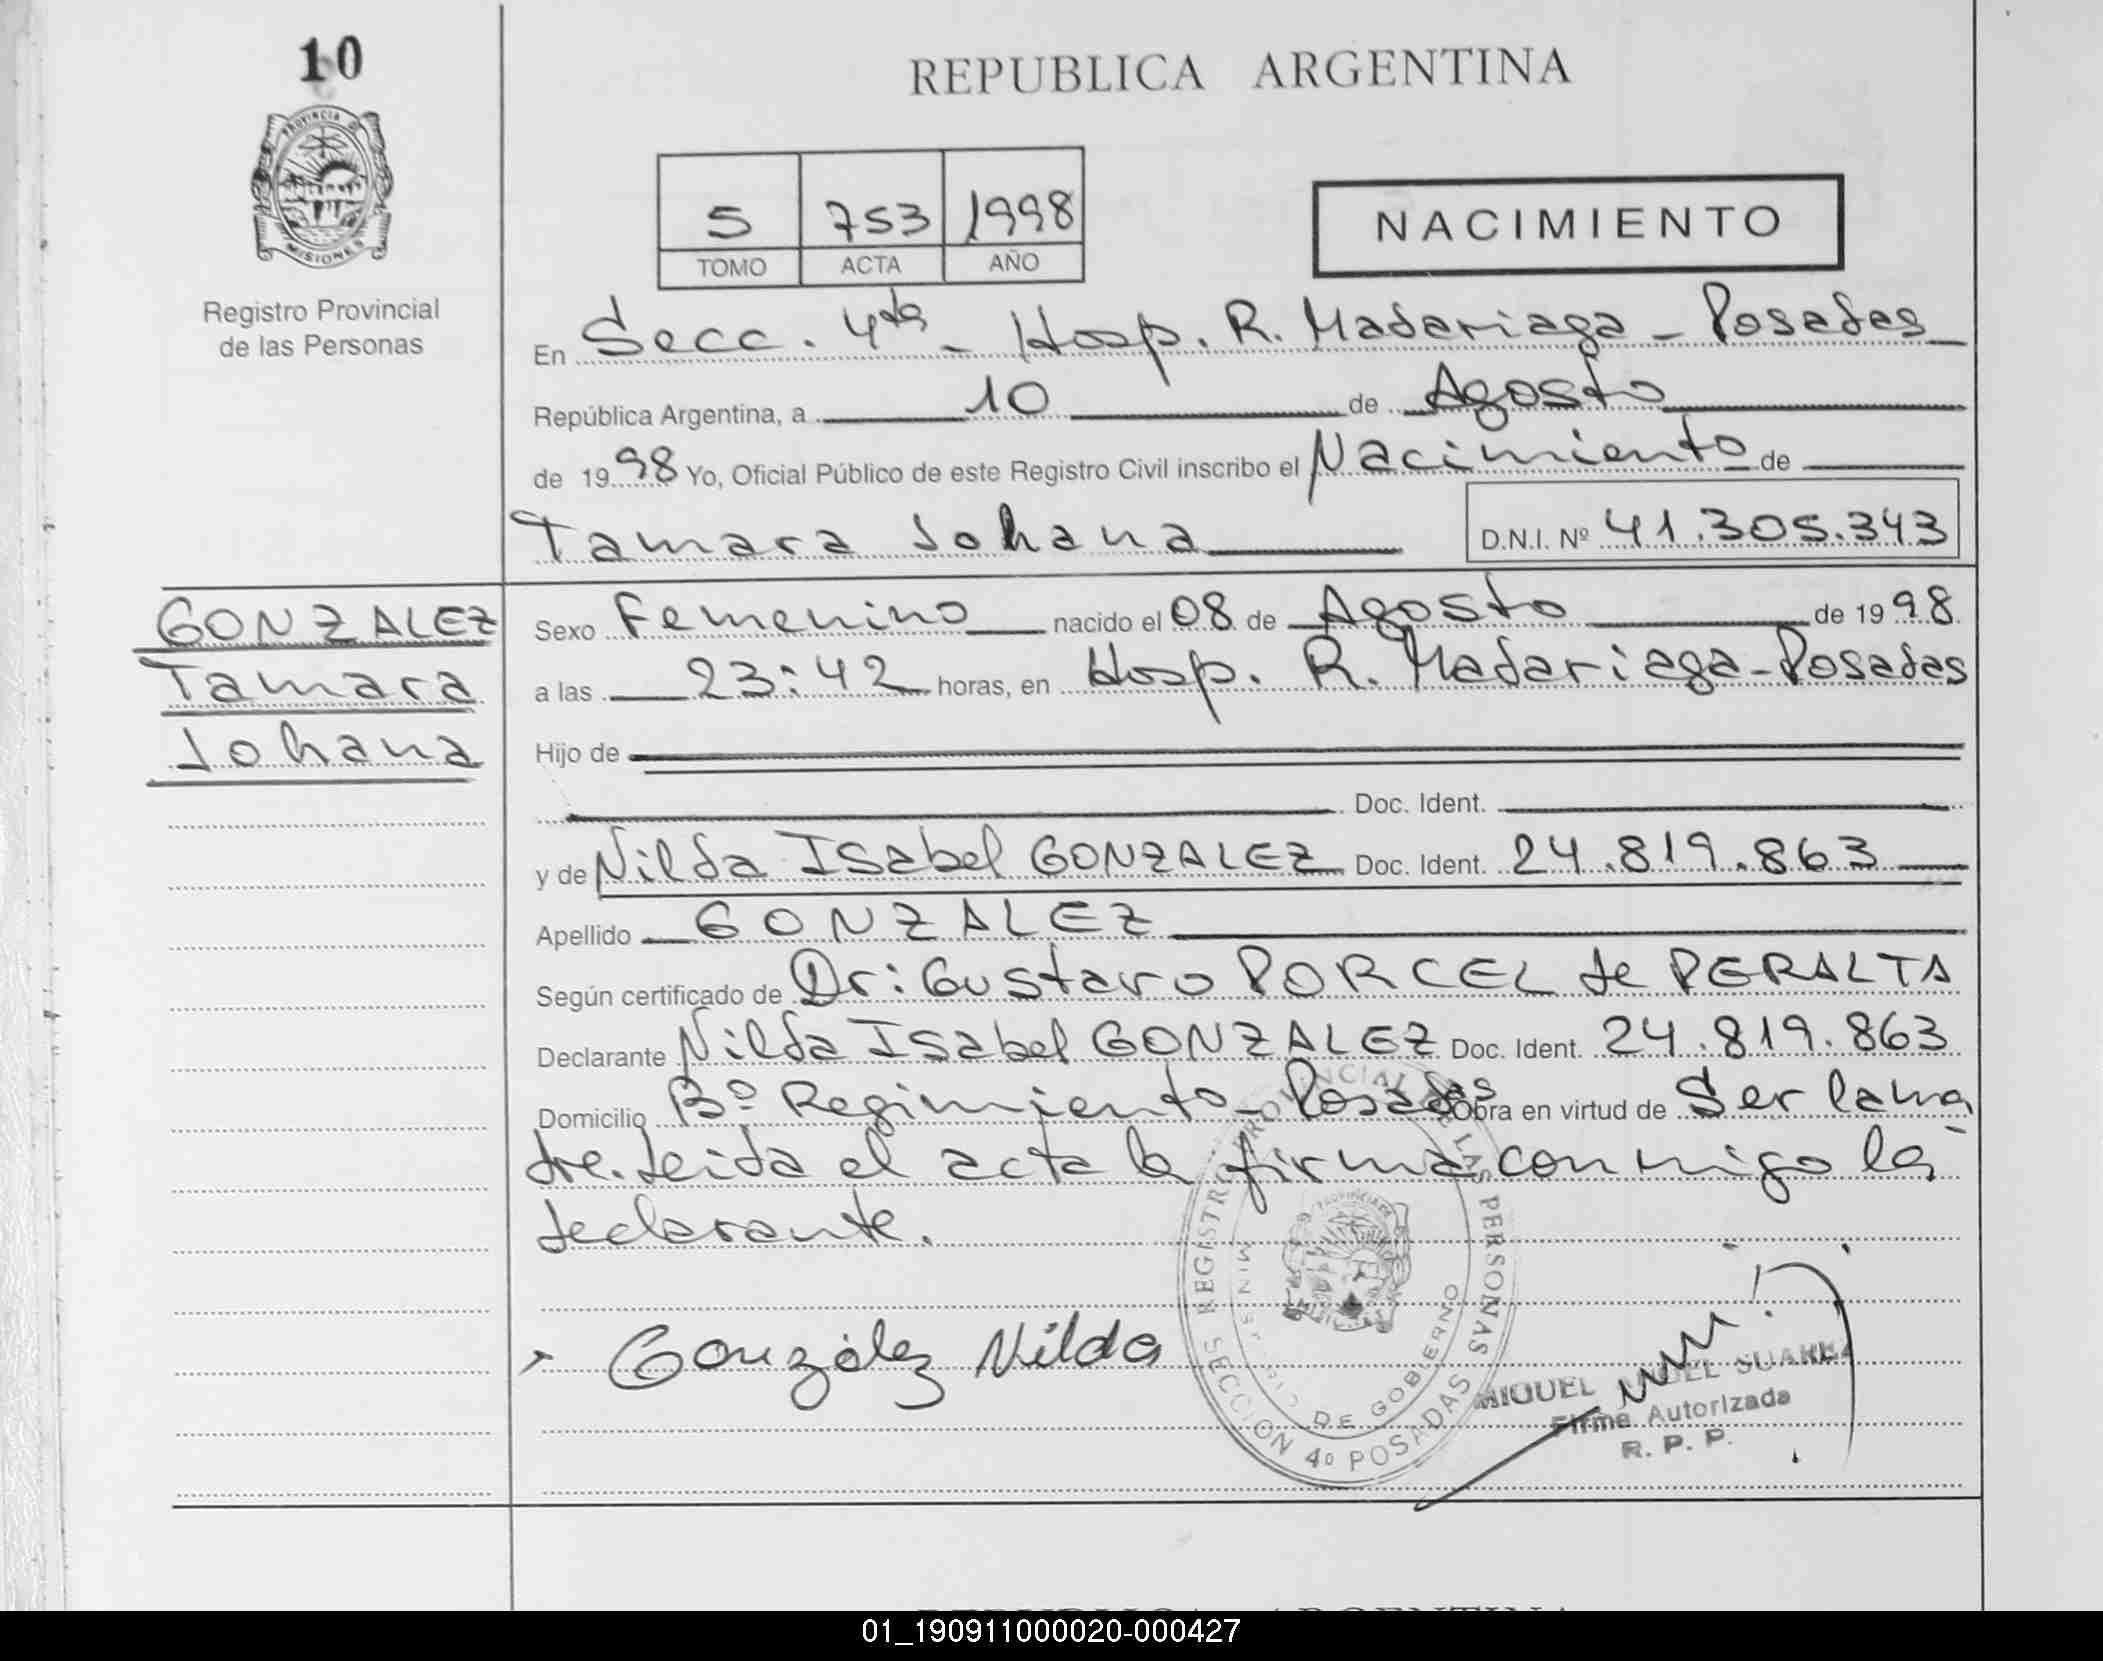 10
REPUBLICA ARGENTINA
PROVINCIA DE
MISIONES
Registro Provincial
de las Personas
5 753 1998
TOMO ACTA AÑO
NACIMIENTO
En Secc. 4ta - Hosp. R. Madariaga - Posadas
República Argentina, a 10 de Agosto
de 1998 Yo, Oficial Público de este Registro Civil inscribo el Nacimiento de
Tamara Johana
D.N.I. Nº 41.305.343
GONZALEZ
Tamara
Johana
Sexo Femenino nacido el 08 de Agosto de 1998.
a las 23:42 horas, en Hosp. R. Madariaga - Posadas
Hijo de
Doc. Ident.
y de Nilda Isabel GONZALEZ Doc. Ident. 24.819.863
Apellido GONZALEZ
Según certificado de Dr: Gustavo PORCEL de PERALTA
Declarante Nilda Isabel GONZALEZ Doc. Ident. 24.819.863
Domicilio Bº Regimiento - Posadas Obra en virtud de Ser la ma
dre. Leida el acta la firma conmigo la
declarante.
González Nilda
REGISTRO PROVINCIAL DE LAS PERSONAS
MINISTERIO DE GOBIERNO
SECCION 4º POSADAS
MIGUEL ANGEL SUAREZ
Firma Autorizada
R. P. P.
REPUBLICA ARGENTINA
01_190911000020-000427